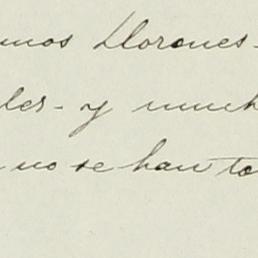 unos Llorones-
les- y much
no se han to